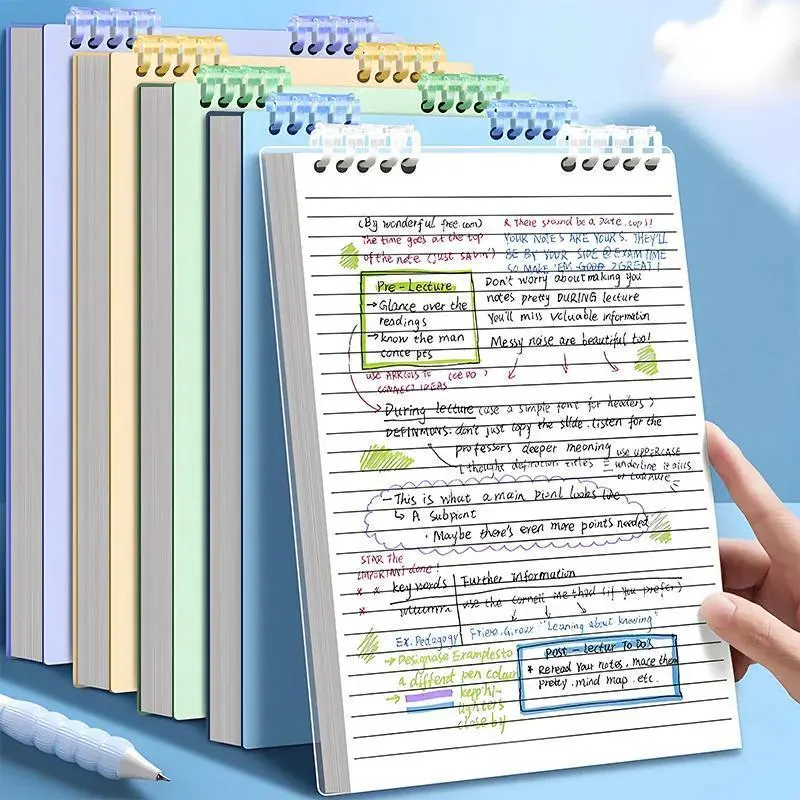 (By wonderful free.com)
The time goes at the top
of the note (just savin')
& There should be a Date.
YOUR NOTES ARE YOURS. THEY'LL
BE BY YOUR SIDE @ EXAM TIME
SO MAKE 'EM GOOD GREAT!
Pre-Lecture
→ Glance over the
readings
→ know the man
conce pts
Don't worry about making you
notes pretty DURING lecture
You'll miss valuable information
Messy noise are beautiful too!
USE ARROWS TO
CONNECT IDEAS
During lecture (use a simple font for headers)
don't just copy the slide. listen for the
professors deeper meaning
use UPPERCASE
underline
- This is what a main looks like
↳ A subpoint
· Maybe there's even more points needed
STAR The
IMPORTANT
* * key words
*
Further Information
use the cornell method (if you prefer)
Ex. Pedagogy
"Leaning about knowing"
→ Designase Examplesto
a differdt pen colour
→
close by
post - lectur To Do's
* Reread Your notes. mace them
pretty. mind map. etc.